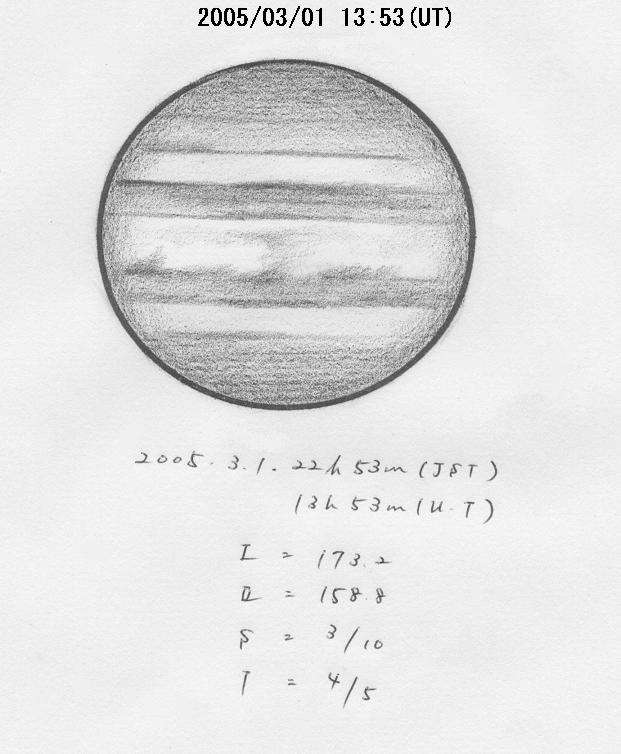 2005/03/01 13:53(UT)
2005. 3. 1. 22h 53m (JST)
13h 53m (U.T)
I = 173.2
II = 158.8
S = 3/10
T = 4/5